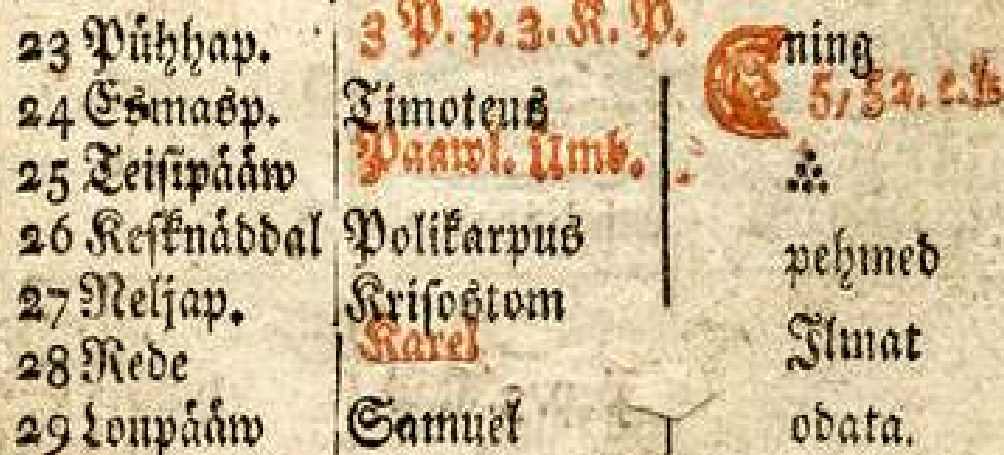 23 Pühhap. 3 P. p. 3. K. P. ning
24 Esmasp. Timoteus 5, 52. e.
25 Teisipääw Paawl. Ümb.
26 Kesknäddal Polikarpus pehmed
27 Neljap. Krisostom
28 Rede Karel Ilmat
29 Loupääw Samuel odata.